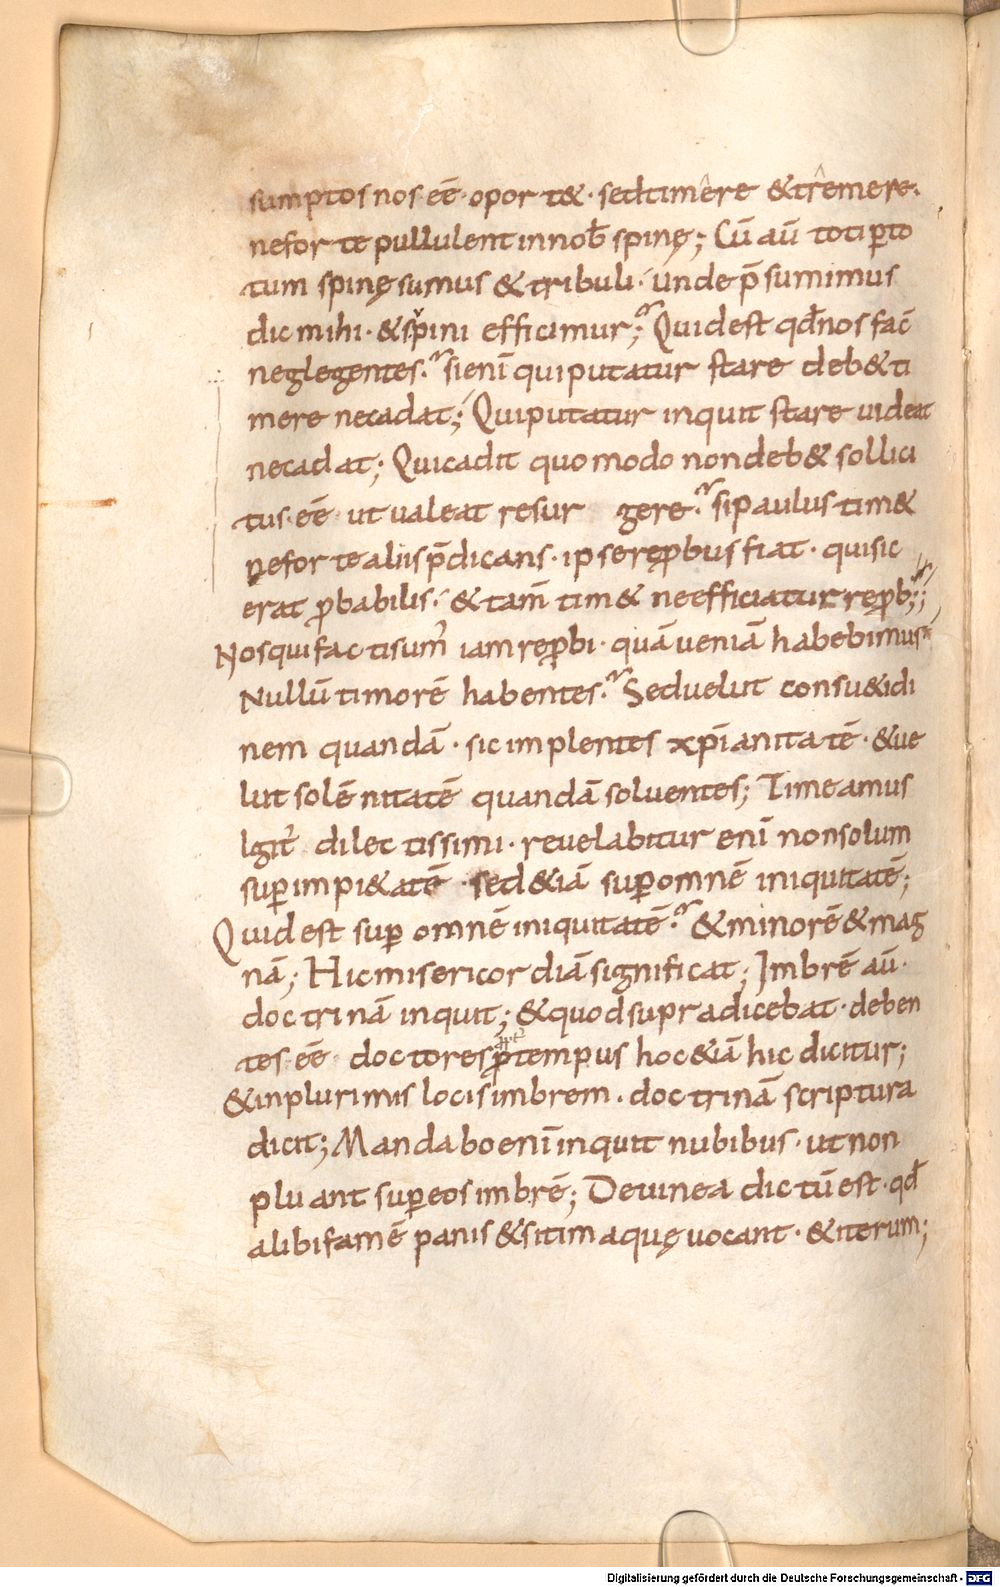 sumptos nos eē· oportet&· sed timêre & trêmere·
ne forte pullulent in nob̄ spinę; Cū aū toti ꝑto
tum spinę sumus & tribuli· unde p̄sumimus
dic mihi· & spini efficimur; Quid est qd̄ nos fac̄
neglegentes· si enī qui putatur stare deb& ti
mere ne cadat; Qui putatur inquit stare uideat
ne cadat; Qui cadit quomodo non deb& sollici
tus eē ut ualeat resur gere· si paulus tim&
ne forte aliis p̄dicans· ipse reꝓbus fiat· qui sic
erat ꝓbabilis· & tam̄ tim& ne efficiatur reꝓb;
Nos qui facti sum̄ iam reꝓbi· quā ueniā habebimus
Nullū timorē habentes· Sed uelut consu&idi
nem quandā· sic implentes xp̄ianitatē· & ue
lut solēnitatē quandā soluentes; Timeamus
Igit̄ dilectissimi· reuelabitur enī non solum
suꝑ impi&atē· sed &iā suꝑ omnē iniquitatē;
Quid est suꝑ omnē iniquitatē· & minorē & mag
nā; Hic misericordiā significat; Imbrē aū·
doctrinā inquit; & quod supra dicebat· deben
tes eē doctores ꝓ tempus hoc &iā hic dicitur;
& in plurimis locis imbrem· doctrinā scriptura
dicit; Mandabo enī inquit nubibus· ut non
pluant suꝑ eos imbrē; De uinea dictū est· qd̄
alibi famē panis & sitim aquę uocant· & iterum;
Digitalisierung gefördert durch die Deutsche Forschungsgemeinschaft - DFG